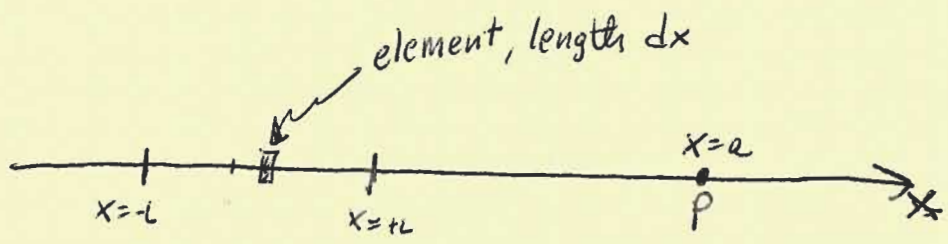 element, length dx
x=a
x=-L
x=+L
P
x